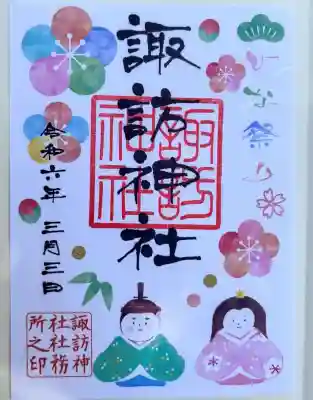 ひな祭り
諏訪神社
諏訪
神社
令和六年 三月三日
諏訪神
社社務
所之印